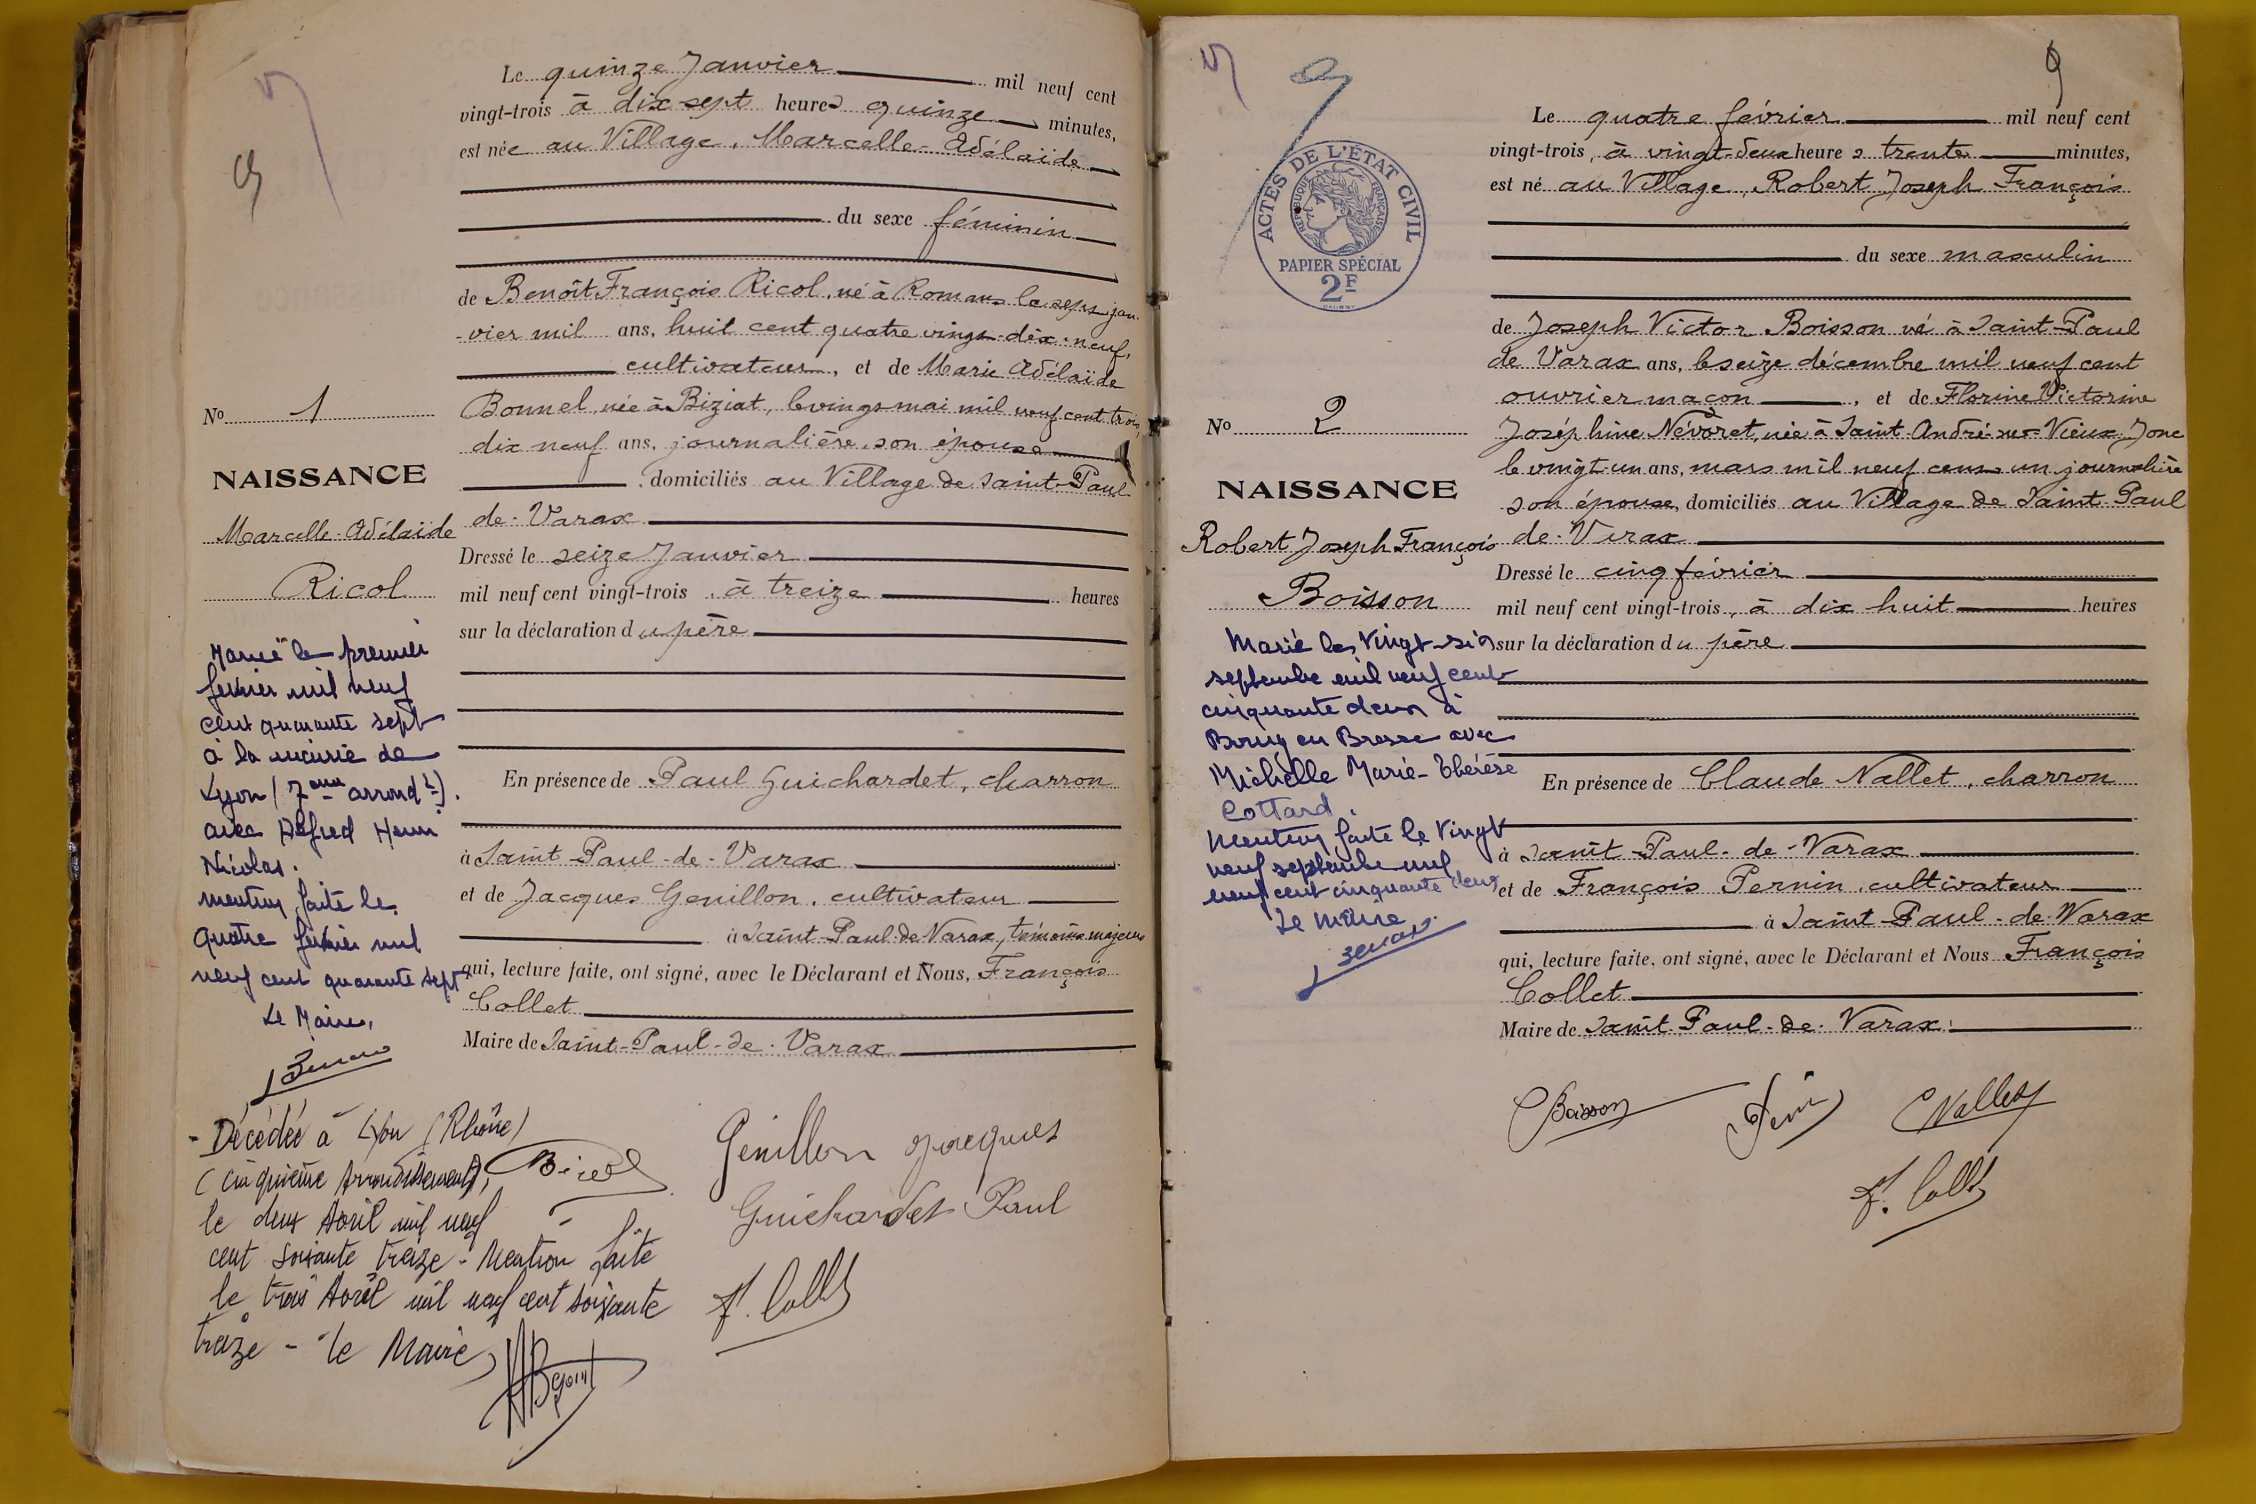 Le quinze Janvier mil neuf cent
vingt-trois à dix sept heures quinze minutes,
est née au Village, Marcelle-Adélaïde
du sexe féminin
de Benoît François Ricol, né à Romans le sept jan
-vier mil ans, huit cent quatre vingt-dix-neuf,
cultivateur, et de Marie Adélaïde
Bonnel, née à Biziat, le vingt mai mil neuf cent trois,
dix neuf ans, journalière, son épouse
domiciliés au Village de Saint-Paul
de-Varax
Dressé le seize Janvier
mil neuf cent vingt-trois, à treize heures
sur la déclaration du père
En présence de Paul Guichardet, charron
à Saint-Paul-de-Varax
et de Jacques Genillon, cultivateur
à Saint-Paul-de-Varax, témoins majeurs
qui, lecture faite, ont signé, avec le Déclarant et Nous, François
Collet
Maire de Saint-Paul-de-Varax
No 1
NAISSANCE
Marcelle-Adélaïde
Ricol
Mariée le premier
février mil neuf
cent quarante sept
à la mairie de
Lyon (7eme arrondt).
avec Alfred Henri
Nicolas.
mention faite le
quatre février mil
neuf cent quarante sept
Le Maire,
- Décédée à Lyon (Rhône)
(cinquième Arrondissement),
le deux Avril mil neuf
cent soixante treize - Mention faite
le trois Avril mil neuf cent soixante
treize - Le Maire,
Ricol
Genillon Jacques
Guichardet Paul
F. Collet
9
Le quatre février mil neuf cent
vingt-trois, à vingt-deux heures trente minutes,
est né au Village, Robert Joseph François
du sexe masculin
de Joseph Victor Boisson né à Saint-Paul
de Varax ans, le seize décembre mil neuf cent
ouvrier maçon, et de Florine Victorine
Joséphine Névoret, née à Saint André sur Vieux Jonc
le vingt-un ans, mars mil neuf cent un journalière
son épouse, domiciliés au Village de Saint-Paul
de-Varax
Dressé le cinq février
mil neuf cent vingt-trois, à dix huit heures
sur la déclaration du père
En présence de Claude Nallet, charron
à Saint-Paul-de-Varax
et de François Pernin, cultivateur
à Saint-Paul-de-Varax
qui, lecture faite, ont signé, avec le Déclarant et Nous François
Collet
Maire de Saint-Paul-de-Varax
ACTES DE L'ÉTAT CIVIL
RÉPUBLIQUE FRANÇAISE
PAPIER SPÉCIAL
2F
No 2
NAISSANCE
Robert Joseph François
Boisson
Marié le vingt-six
septembre mil neuf cent
cinquante deux à
Bourg en Bresse avec
Michelle Marie-Thérèse
Cottard.
Mention faite le vingt
neuf septembre mil
neuf cent cinquante deux
Le Maire.
Boisson
CNallet
F. Collet